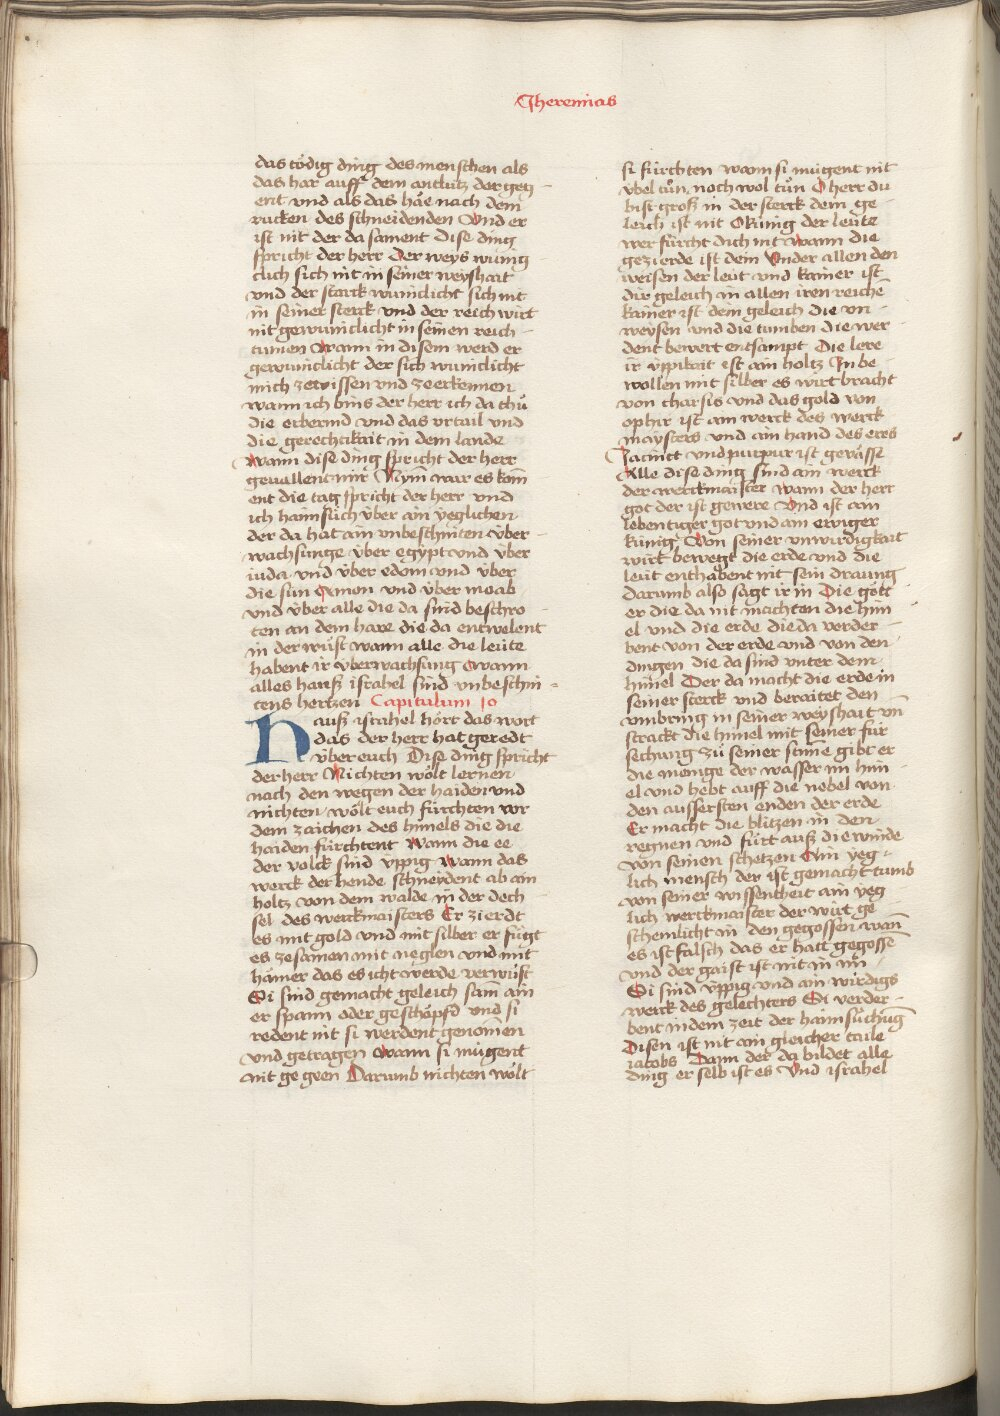 Jheremias
das tödig ding des menschen als
das har auff dem antlütz der geg
ent vnd als das häe nach dem
rucken des schneidenden Vnd er
ist nit der da sament Dise ding
spricht der herr Der weys wunig
clich sich nit in seiner weyshait
vnd der starck wuniclicht sich nit
in seiner sterck vnd der reich wirt
nit gewuniclicht in seinen reich
tumen Wann in disem werd er
gewuniclicht der sich wuniclicht
mich ze wissen vnd ze erkennen
wann ich bins der herr ich da thů
die erbermd vnd das vrtail vnd
die gerechtikait in dem lande
Wann dise ding spricht der herr
geuallent mir Nym war es kom̄
ent die tag spricht der herr vnd
ich haimsůch über ain yeglichen
der da hat ain vnbeschniten über
wachsunge über egypt vnd über
iuda vnd über edom vnd über
die sün Amon vnd über moab
vnd über alle die da sind beschro
ten an dem hare die da entwelent
in der wůst wann alle die leüte
habent ir überwachsung wann
alles hauß israhel sind vnbeschni
tens hertzen Capitulum 10
Hauß israhel hört das wort
das der herr hat geredt
über euch Dise ding spricht
der herr Nichten wölt lernen
nach den wegen der haiden vnd
nichten wölt euch fürchten vor
dem zaichen des himels die die
haiden fürchtent Wann die ee
der volck sind üppig Wann das
werck der hende schneydent ab ain
holtz von dem walde in der dech
sel des werckmaisters Er zierdt
es mit gold vnd mit silber er fügt
es zesamen mit neglen vnd mit
hämer das es icht werde verwüst
Si sind gemacht geleich sam ain
er spann oder geschöpfd vnd si
redent nit si werdent genomen
vnd getragen wann si mügent
nit ge geen Darumb nichten wölt
si fürchten wann si mügent nit
übel tůn noch wol tůn O herr du
bist groß in der sterck dem ge
leich ist nit O künig der leüte
wer fürcht dich nit Wann die
gezierde ist dein Vnder allen den
weisen der leüt vnd kainer ist
dir geleich in allen iren reichē
kainer ist dein geleich die vn
weysen vnd die tumben die wer
dent bewert entsampt Die lere
ir üppikait ist ain holtz In be
wollen mit silber es wirt bracht
von tharsis vnd das gold von
ophir ist ain werck des werck
maysters vnd ain hand des eres
Jacinct vnd purpur ist gewässe
Alle dise ding sind ain werck
der werckmaister wann der herr
got der ist gewere Vnd ist ain
lebentiger got vnd ain ewiger
künig Von seiner vnwirdigkait
wirt bewegt die erde vnd die
leüt enthabent nit sein drawng
darumb also sagt ir in Die gött
er die da nit machten die him
el vnd die erde die da verder
bent von der erde vnd von den
dingen die da sind vnter dem
himel Der da macht die erde in
seiner sterck vnd beraitet den
vmbring in seiner weyshait vn̄
strackt die himel mit seiner für
sechung Zů seiner stime gibt er
die menige der wasser im him
el vnd hebt auff die nebel von
den aussersten enden der erde
Er macht die blitzen in den
regnen vnd fürt auß die winde
von seinen schetzen Ain yeg
lich mensch der ist gemacht tumb
von seiner wissentheit ain yeg
lich werckmaister der wirt ge
schemlicht in den gegossen wan̄
es ist falsch das er hatt gegossē
vnd der gaist ist nit in im
Si sind üppig vnd ain wirdigs
werck des gelechters Si verder
bent in dem zeit der haimsůchūg
Disen ist nit ain gleicher taile
iacobs Dann der da bildet alle
ding er selb ist es Vnd israhel